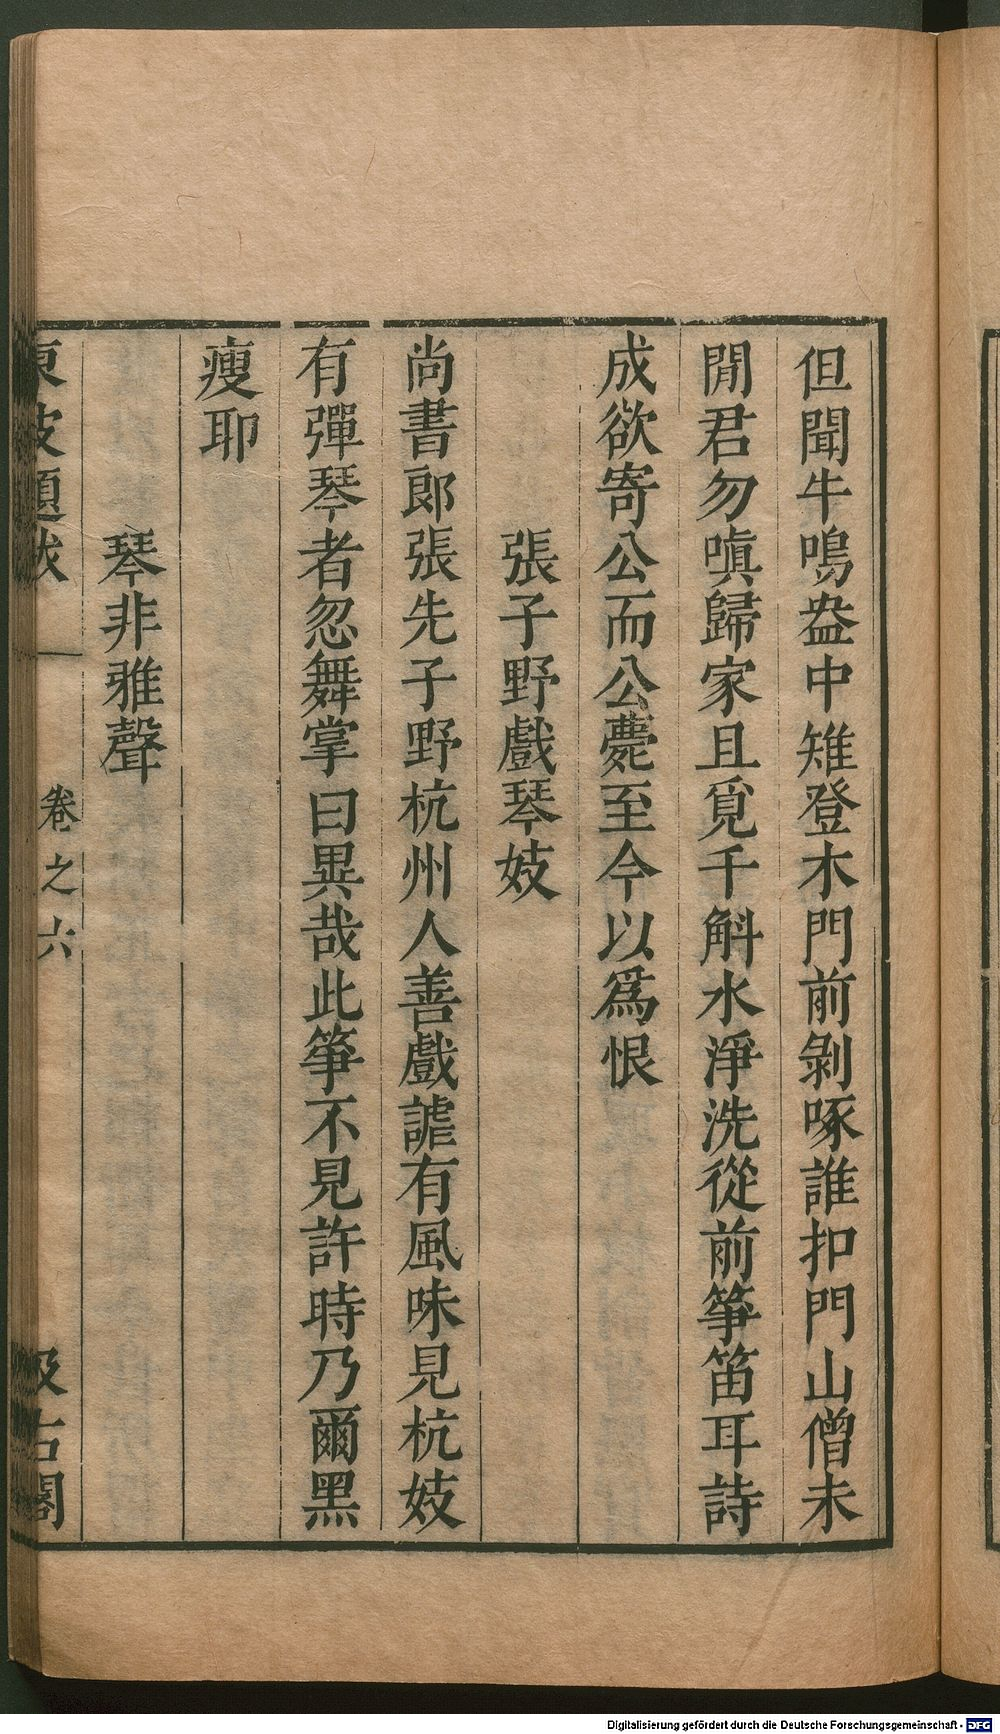 但聞牛鳴盎中雉登木門前剝啄誰扣門山僧未
閒君勿嗔歸家且覓千斛水淨洗從前箏笛耳詩
成欲寄公而公薨至今以爲恨
張子野戲琴妓
尚書郎張先子野杭州人善戲謔有風味見杭妓
有彈琴者忽舞掌曰異哉此箏不見許時乃爾黑
瘦耶
琴非雅聲
東坡題跋 卷之六 汲古閣
Digitalisierung gefördert durch die Deutsche Forschungsgemeinschaft - DFG